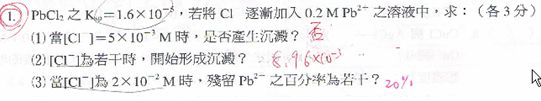 1. PbCl₂ 之 Kₛₚ=1.6×10⁻⁵，若將 Cl⁻ 逐漸加入 0.2 M Pb²⁺ 之溶液中，求：(各 3 分)
(1) 當[Cl⁻]=5×10⁻³ M 時，是否產生沉澱？ 否
(2) [Cl⁻]為若干時，開始形成沉澱？ 8.96×10⁻³
(3) 當[Cl⁻]為 2×10⁻² M 時，殘留 Pb²⁺ 之百分率為若干？ 20%